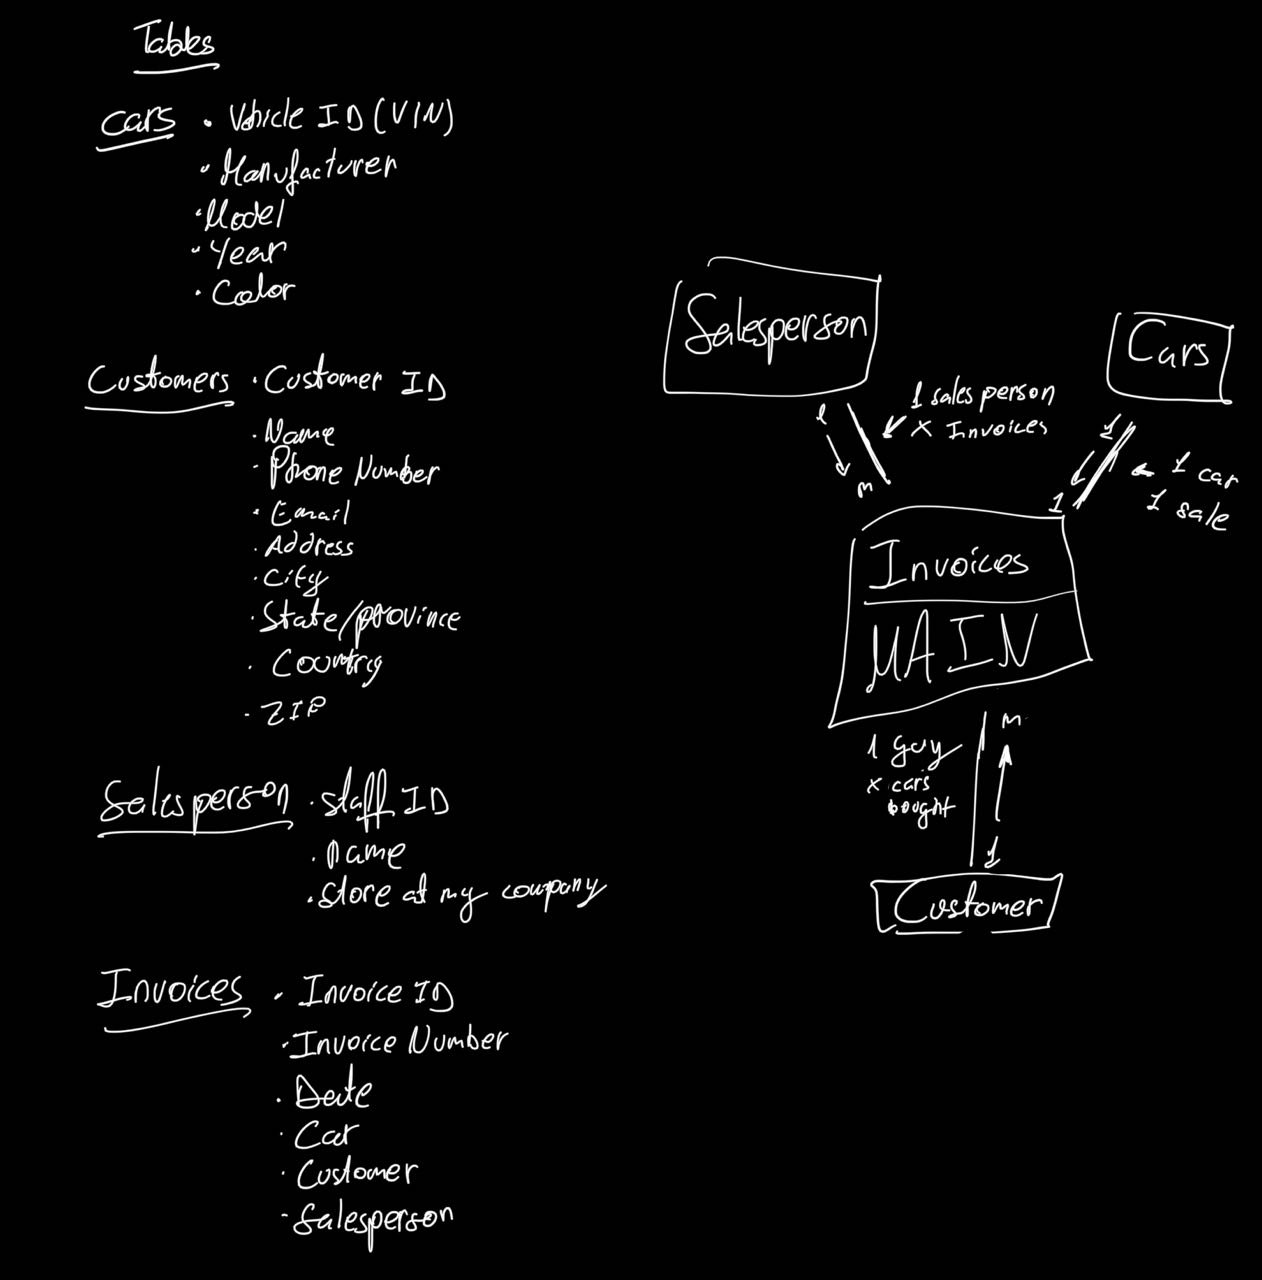 Tables
Cars . Vehicle ID (VIN)
. Manufacturer
. Model
. Year
. Color
Customers . Customer ID
. Name
. Phone Number
. Email
. Address
. City
. State/province
. Country
. ZIP
Salesperson . staff ID
. name
. store at my company
Invoices . Invoice ID
. Invoice Number
. Date
. Car
. Customer
. Salesperson
Salesperson
Cars
1 sales person
x Invoices
1
m
1
1
1 car
1 sale
Invoices
MAIN
m
1 guy
x cars
bought
1
Customer